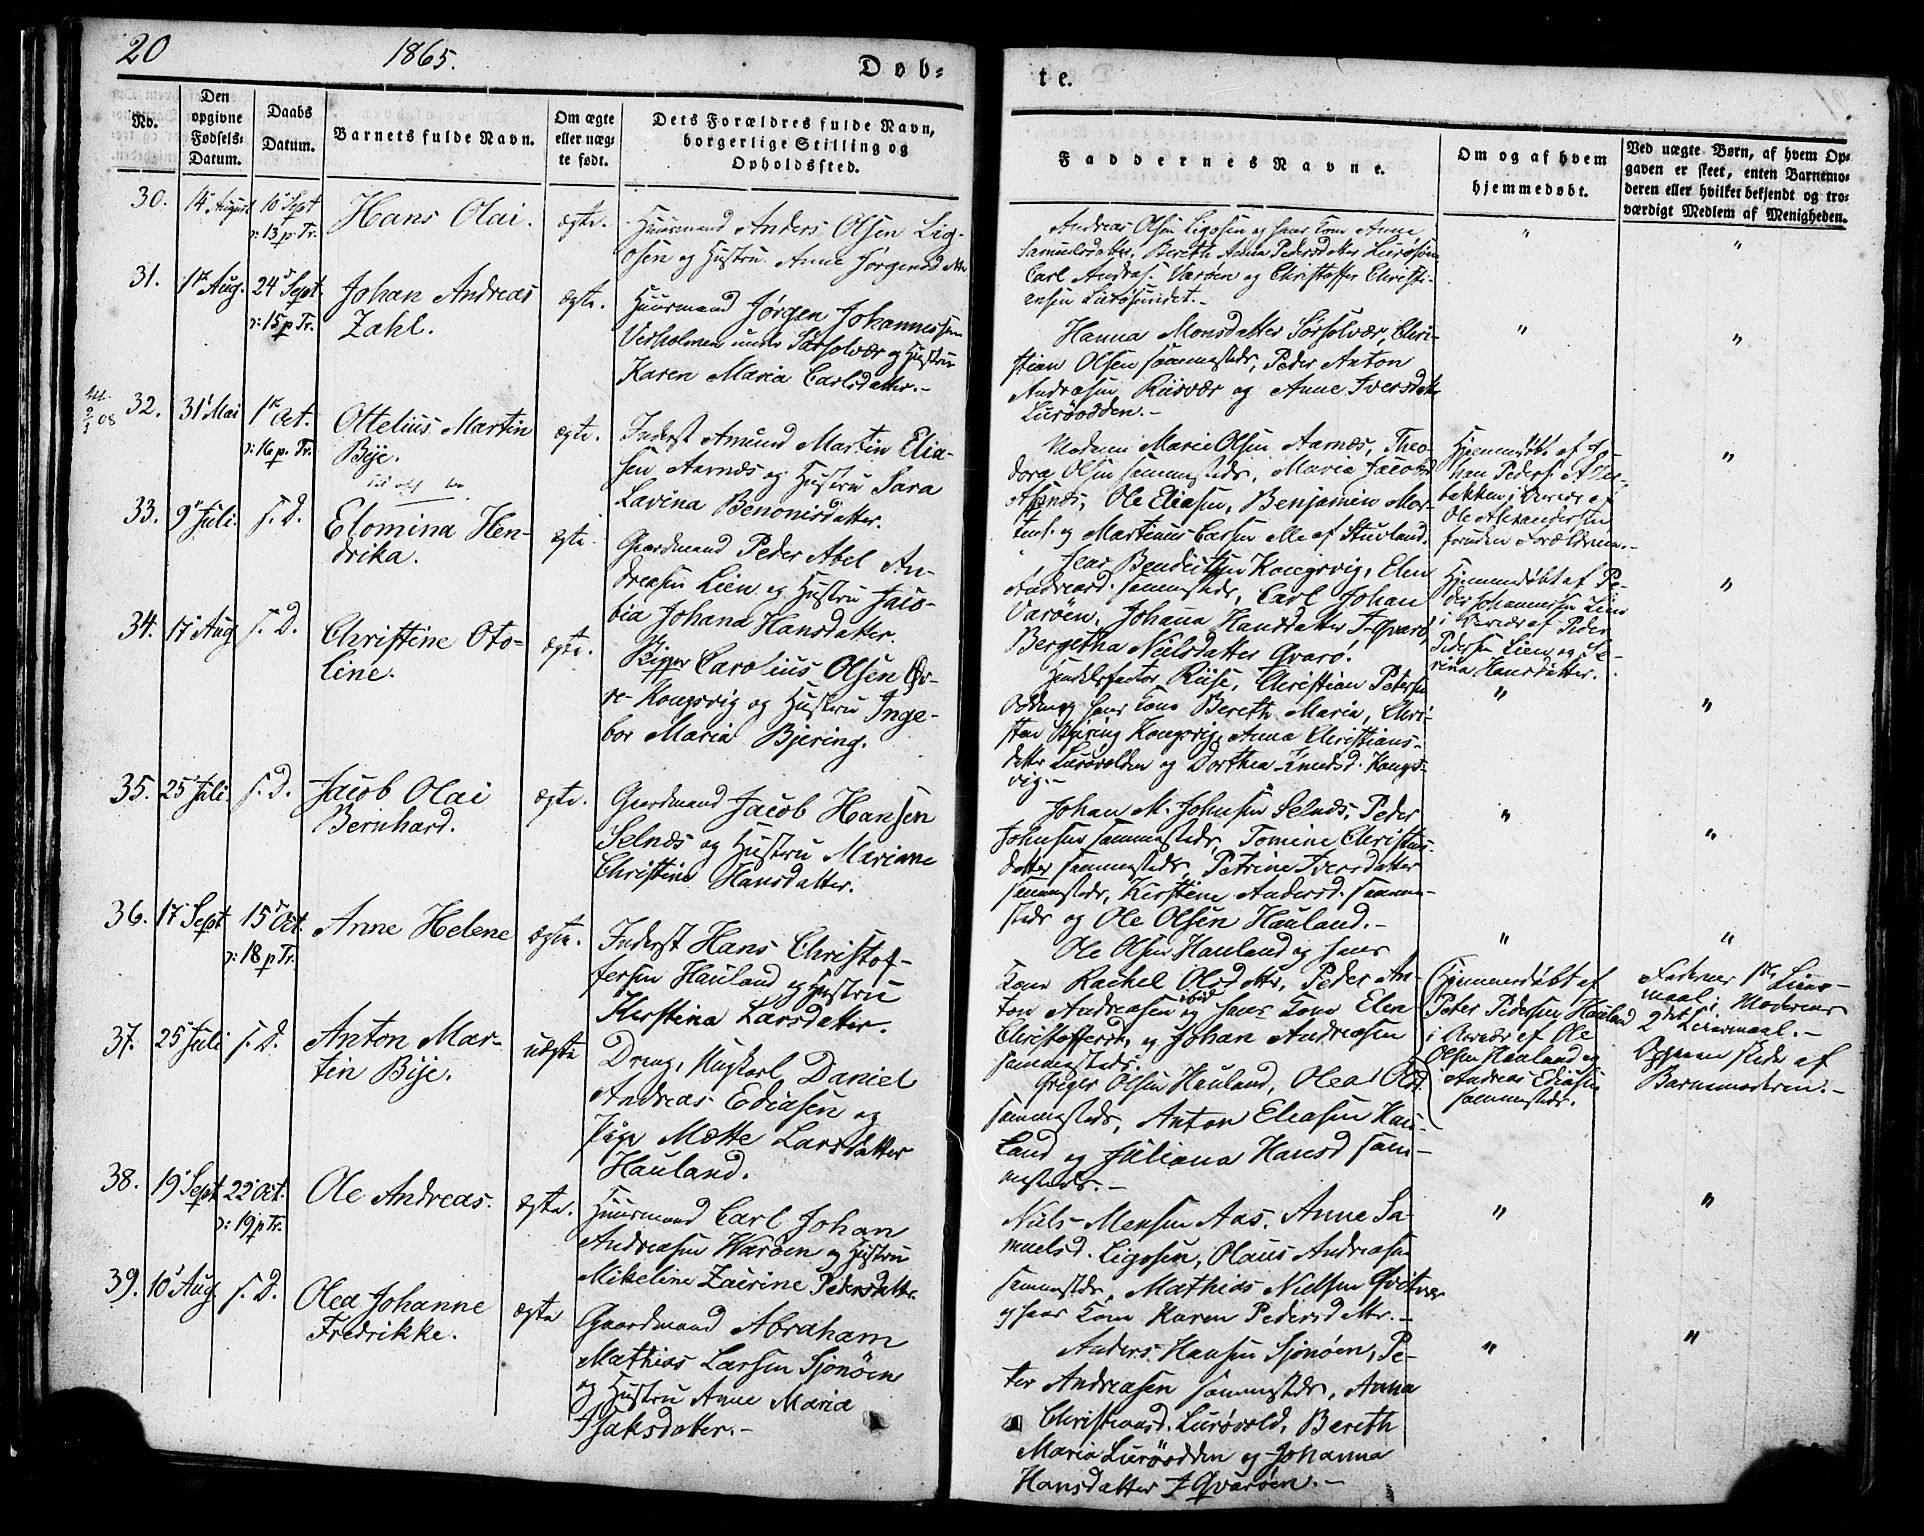 20
1865.
Døb-
te.
No.
Den
opgivne
Fødsels-
Datum.
Daabs
Datum.
Barnets fulde Navn.
Om ægte
eller uæg-
te født.
Dets Forældres fulde Navn,
borgerlige Stilling og
Opholdssted.
Faddernes Navne.
Om og af hvem
hjemmedøbt.
Ved uægte Børn, af hvem Op-
gaven er skeet, enten Barnemo-
deren eller hvilket bekjendt og tro-
værdigt Medlem af Menigheden.
30.
14 August
10 Sept
ɔ: 13 p. Tr.
Hans Olai.
ægte.
Huusmand Anders Olsen Lig-
osen og Hustru Anne Jørgensdtr
Andreas Olsen Ligosen og hans Kone Anne
Samuelsdatter, Bereth Anna Pedersdatter Lurøsund
Carl Andreas. Varøen og Christoffer Christi-
ensen Lurøsundet.-
"
"
31.
1ste Aug.
24 Sept.
ɔ: 15 p Tr.
Johan Andreas
Zahl.
ægte.
Huusmand Jørgen Johannessen
Vedholmen under Sørsolvær og Hustru
Karen Maria Carlsdatter.-
Hanna Monsdatter Sørsolvær, Chri-
stian Olsen sammesteds, Peder Anton
Andreasen Risvær og Anne Iversdatter
Lurøodden.-
"
"
32.
31 Mai
1ste Oct.
ɔ: 16 p. Tr.
Ottelius Martin
Bye.
ægte.
Inderst Amund Martin Elia-
sen Aarnæs og Hustru Sara
Lavina Benonisdatter.
Madam Marie Olsen Aarnæs, Theo-
dora Olsen sammesteds, Maria Jacobsd
Ole Eliasen, Benjamin Mor-
tens. og Martinus Larsen alle af Stuvland.
Hjemmedøbt af Jo-
han Peders. Alse-
bakken i Overvær af
Ole Alexandersen
foruden Forældrene.-
"
33.
9 Juli.
s. D.
Elomina Hen-
drika.
ægte.
Gaardmand Peder Abel An-
dreasen Lien og Hustru Jaco-
bia Johana Hansdatter.
Jens Bendictsen Kongsvig, Elen
Andreasd. sammesteds, Carl Johan
Varøen, Johana Hansdatter I. Qvarø,
Bergetha Nielsdatter Qvarø.
Hjemmedøbt af Pe-
der Johannessen Lien
i Overvær af Peder
Pedersen Lien og Se-
rina Hansdatter.
"
34.
17 Aug
s. D.
Christine Oto-
line.
ægte.
Carolius Olsen Øv-
re Kongsvig og Hustru Inge-
bor Maria Bjering.
Handelsfactor Riise, Christian Petersen
Odden og hans Kone Bereth Maria, Chri-
sten Bjering Kongsvig, Anna Christians-
datter Lurøvolden og Dorthea Knudsd. Kongs-
vig.-
"
"
35.
25 Juli.
s. D.
Jacob Olai
Bernhard.
ægte.
Gaardmand Jacob Hansen
Selnæs og Hustru Mariane
Christina Hansdatter.
Johan M. Johnsen Selnæs, Peder
Johnsen sammesteds, Tomine Christens-
datter sammesteds, Petrine Iversdatter
sammesteds, Kirstine Andersd. samme-
steds og Ole Olsen Hauland.-
"
"
36.
17 Sept
15 Oct.
ɔ: 18 p Tr.
Anne Helene
ægte.
Inderst Hans Christof-
fersen Hauland og Hustru
Kerstina Larsdatter.
Ole Olsen Hauland og hans
Kone Rachel Olsdatter, Peder An-
ton Andreasen ibid og hans Kone Elen
Christoffersd. og Johan Andreasen
sammesteds.
"
"
37.
25 Juli
s. D.
Anton Mar-
tin Bye.
uægte
Dreng, Huskarl Daniel
Andreas Ediasen og
Pige Mætte Larsdatter
Hauland.
Griger Olsen Hauland, Olea Olsd.
sammesteds, Anton Eleasen Hau-
land og Juliana Hansd sam-
mesteds.-
Hjemmedøbt af
Peter Pedersen Hauland
i Overvær af Ole
Olsen Hauland og
Andreas Ediasen
sammesteds.
Faderens 1ste Leier-
maal, Moderens
2det Leiermaal.-
Opgaven skeet af
Barnemoderen.-
38.
19 Sept
22 Oct.
ɔ: 19 p Tr.
Ole Andreas.
ægte.
Huusmand Carl Johan
Andreasen Warøen og Hustru
Mikeline Zacrine Pedersdatter.
Niels Monsen Aas, Anne Sa-
muelsd. Ligosen, Olaus Andreasen
sammesteds, Mathias Nielsen Qvitvær
og hans Kone Karen Pedersdatter.-
"
"
39.
10 Aug.
s. D.
Olea Johanne
Fredrikke.
ægte
Gaardmand Abraham
Mathias Larsen Sjonøen
og Hustru Anne Maria
Isaksdatter.-
Anders Hansen Sjonøen, Pe-
ter Andreasen sammesteds, Anna
Christiansd. Lurøvold, Bereth
Maria Lurøodden og Johanna
Hansdatter I Qvarøen.-
"
"